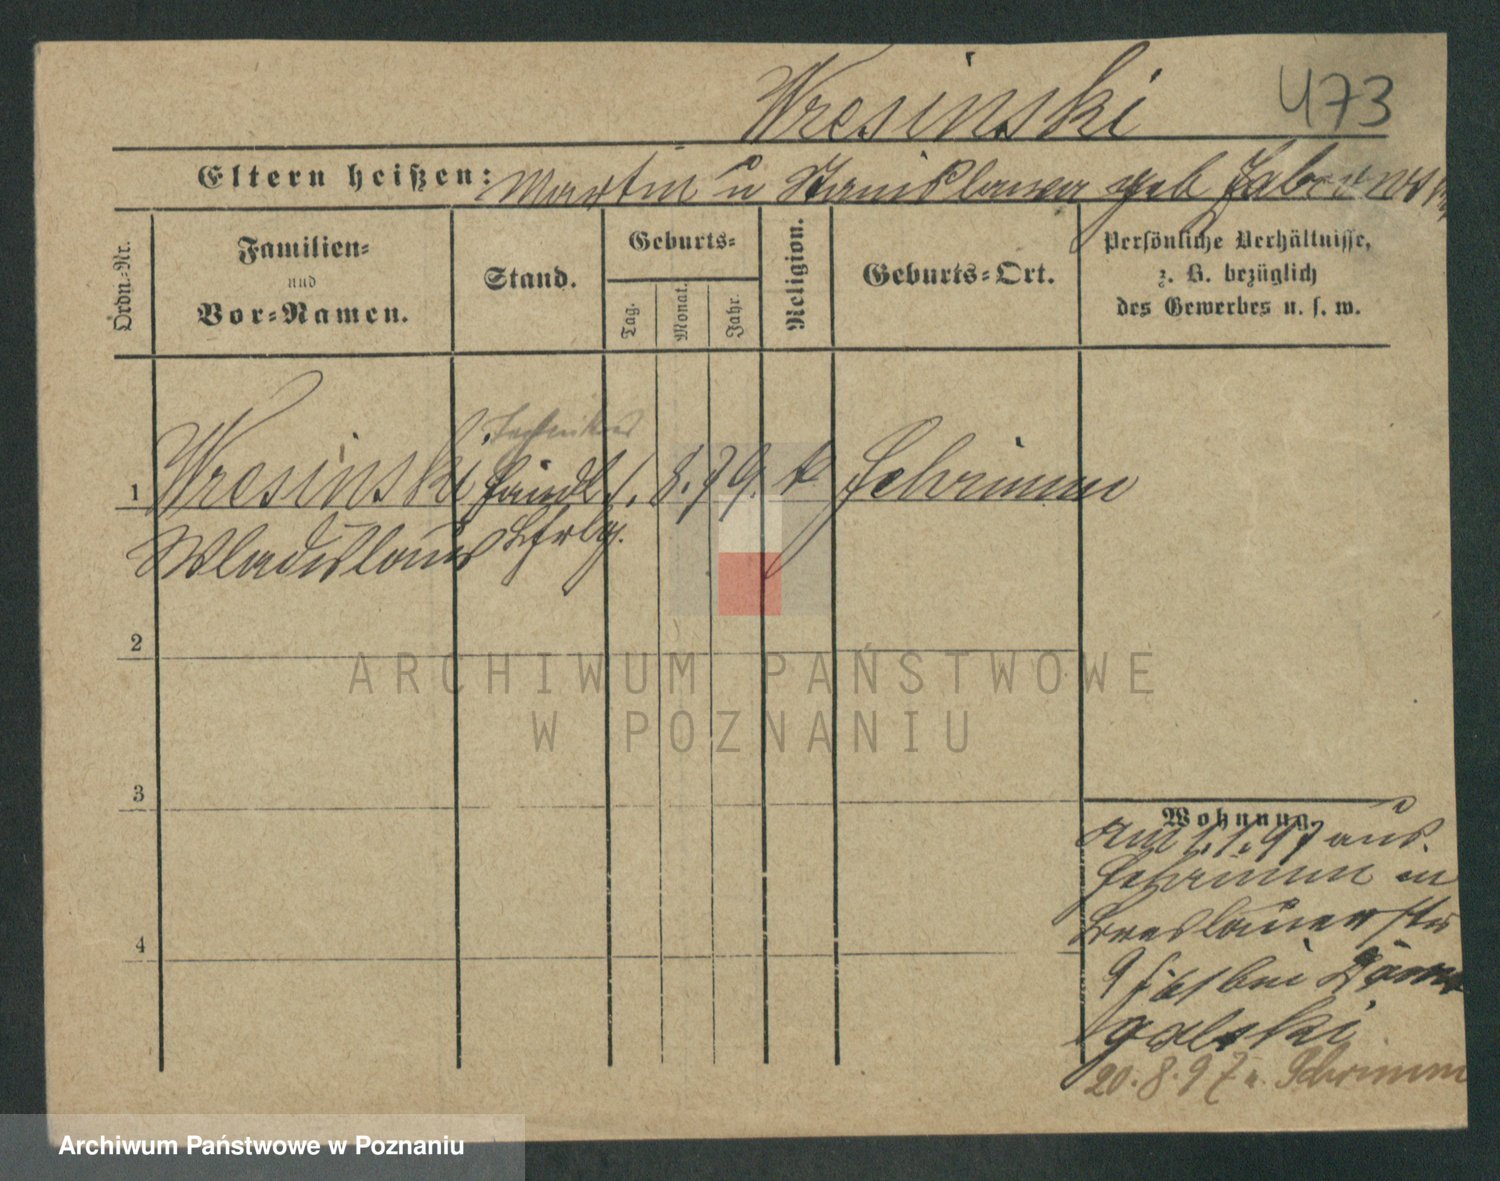 Wresinski 473
Eltern heißen: Martin u Stanislawa geb
Ordn.-Nr.
Familien-
und
Vor-Namen.
Stand.
Geburts-
Tag.
Monat.
Jahr.
Religion.
Geburts-Ort.
Persönliche Verhältnisse,
z. B. bezüglich
des Gewerbes u. s. w.
1 Wresinski Handl. 1. 8. 79. k Schrimm
Wladislaus Lehrlg.
2
3
4
Wohnung
Am 1.1.97 aus
Schrimm in
Breslauerstr
9 bei
20.8.97 n. Schrimm
ARCHIWUM PAŃSTWOWE
W POZNANIU
Archiwum Państwowe w Poznaniu